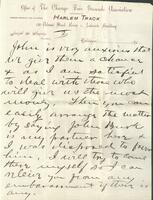 Office of The Chicago Fair Grounds Association
HARLEM TRACK
I
John is very anxious that
we give them a chance
& as I am satisfied
to deal with those who
will give us the most
money. Then you can
easily arrange the matter
by saying John Brok
is my partner here &
I was disposed to favor
him. I will try to turn
them myself so I can
relieve you from any
embarrassment if there is
any.